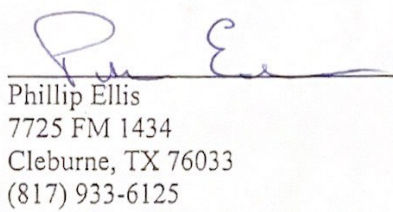 Phillip Ellis
7725 FM 1434
Cleburne, TX 76033
(817) 933-6125